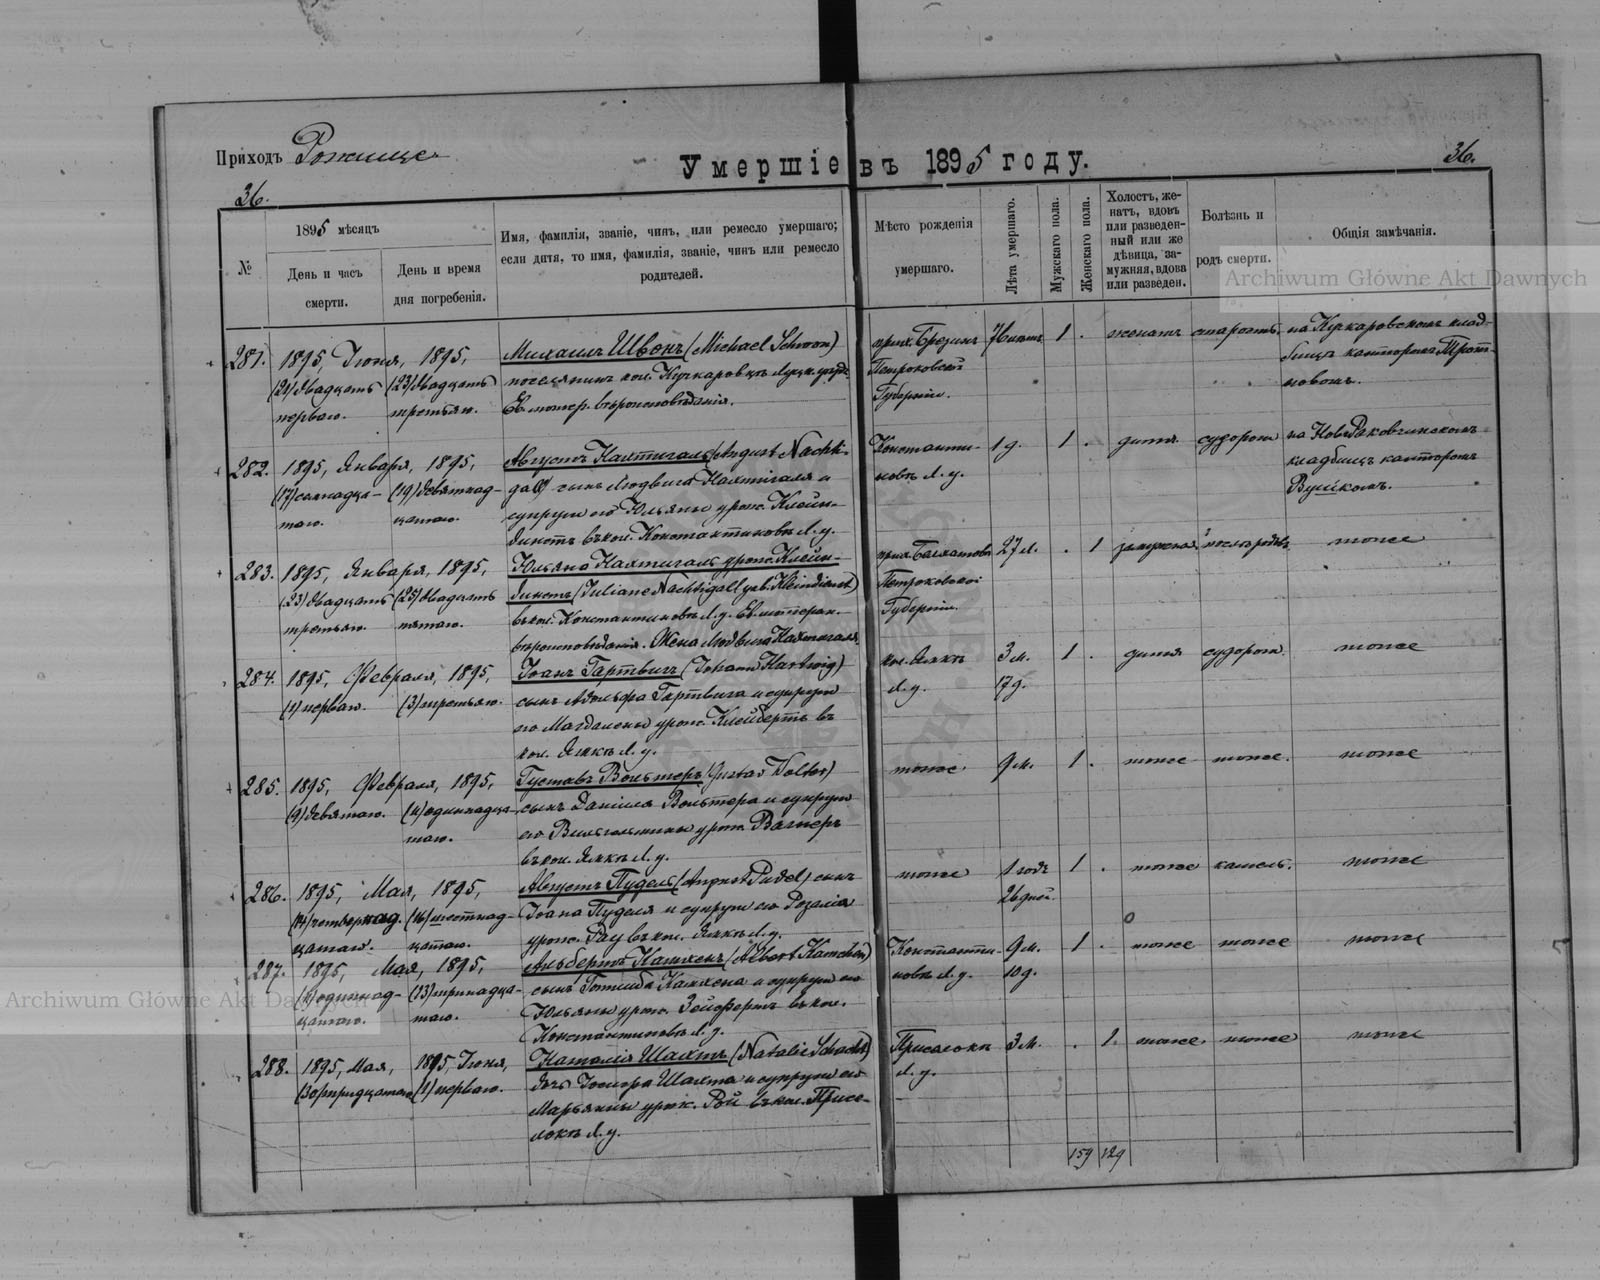 Приходъ Рожище
Умершіе въ 1895 году.
36.
36.
№
1895 мѣсяцъ
День и часъ смерти.
День и время дня погребенія.
Имя, фамилія, званіе, чинъ, или ремесло умершаго;
если дитя, то имя, фамилія, званіе, чинъ или ремесло
родителей.
Мѣсто рожденія
умершаго.
Лѣта умершаго.
Мужскаго пола.
Женскаго пола.
Холостъ, же-
натъ, вдовъ
или разведен-
ный или же
дѣвица, за-
мужняя, вдова
или разведен.
Болѣзнь и
родъ смерти.
Общія замѣчанія.
Archiwum Główne Akt Dawnych
281. 1895, Іюня, 1895,
(21) двадцать перваго.
(23) двадцать третьяго.
Михаилъ Швонъ (Michael Schwon)
поселянинъ кол. Кучкаровцъ Луцк. уѣзда
Ев. лютер. вѣроисповѣданія.
прих. Брезинъ
Петроковской
Губерніи.
76 лѣтъ 1 . женатъ старость.
на Кучкаровскомъ клад-
бищѣ канторомъ
282. 1895, Января, 1895,
(17) семнадца-
таго.
(19) девятнад-
цатаго.
Августъ Нахтигалъ (August Nachti-
gall) сынъ Людвига Нахтигаля и
супруги его Юльяны урож. Клейн-
динстъ въ кол. Константиновкѣ Л. у.
Константи-
новкѣ Л. у.
1 д. 1 . дитя судорогъ
на Новъ Раковчинскомъ
кладбищѣ канторомъ
283. 1895, Января, 1895,
(23) двадцать
третьяго.
(25) двадцать
пятаго.
Юльяна Нахтигаль урож. Клейн-
динстъ (Juliane Nachtigall geb. Kleindienst)
въ кол. Константиновкѣ Л. у. Ев. лютеран.
вѣроисповѣданія. Жена Людвига Нахтигаля.
прих. Белхатовъ
Петроковской
Губерніи.
27 л. . 1 замужняя послѣ родовъ тоже
284. 1895, Февраля, 1895,
(1) перваго. (3) третьяго.
Іоанъ Гартвигъ (Johann Hartwig)
сынъ Адольфа Гартвига и супруги
его Магдалены урож. Клейбертъ въ
кол. Ямкѣ Л. у.
кол. Ямкѣ
Л. у.
3 м.
17 д.
1 . дитя судорог. тоже
285. 1895, Февраля, 1895,
(9) девятаго. (11) одиннадца-
таго.
Густавъ Вольтеръ (Gustav Wolter)
сынъ Даніиля Вольтера и супруги
его Вильгельмины урож. Вагнеръ
въ кол. Ямкѣ Л. у.
тоже 9 м. 1 . тоже тоже. тоже
286. 1895, Мая, 1895,
(14) четвернад
цатаго.
(16) шестнад-
цатаго.
Августъ Пудель (August Pudel) сынъ
Іоана Пуделя и супруги его Розаліи
урож. Рау въ кол. Ямкѣ Л. у.
тоже 1 годъ
26 дней.
1 . тоже кашель. тоже
287. 1895, Мая, 1895,
(11) одиннад-
цатаго.
(13) тринадца-
таго.
Альбертъ Камхенъ (Albert Kamchen)
сынъ Готлиба Камхена и супруги его
Юльяны урож. Зейфертъ въ кол.
Константиновкѣ Л. у.
Константи-
новкѣ Л. у.
9 м.
10 д.
1 . тоже тоже тоже
Archiwum Główne Akt Dawnych
288. 1895, Мая, 1895, Іюня,
(30) тридцатаго (1) перваго.
Наталія Шахтъ (Natalie Schacht)
дочь Шахта и супруги его
Марьянны урож. Рой въ кол. Присе-
локѣ Л. у.
Приселокѣ
Л. у.
3 м. . 1. тоже тоже тоже
159 129